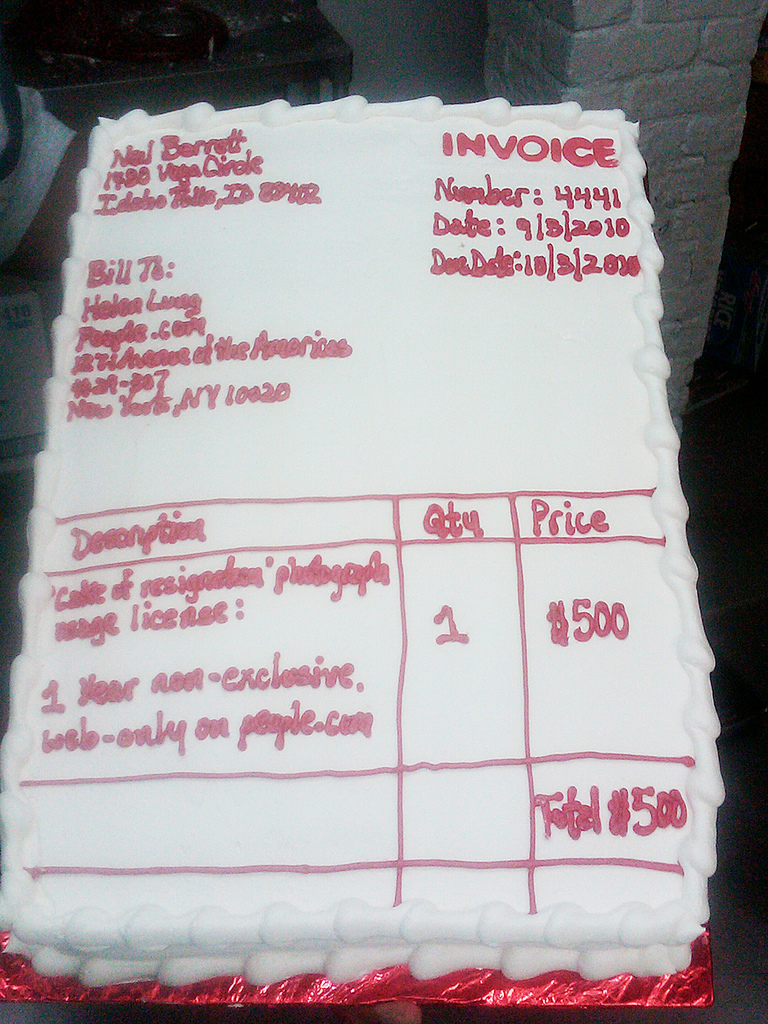 Neal Barrett
1488 Vega Circle
Idaho Falls, ID 83402
INVOICE
Number: 4441
Date: 9/3/2010
Due Date: 10/3/2010
Bill To:
Helen Lung
People.com
1271 Avenue of the Americas
#29-307
New York, NY 10020
Description
Qty
Price
"Cake of resignation" photograph
usage license:
1
$500
1 Year non-exclusive,
web-only on people.com
Total $500
RICE